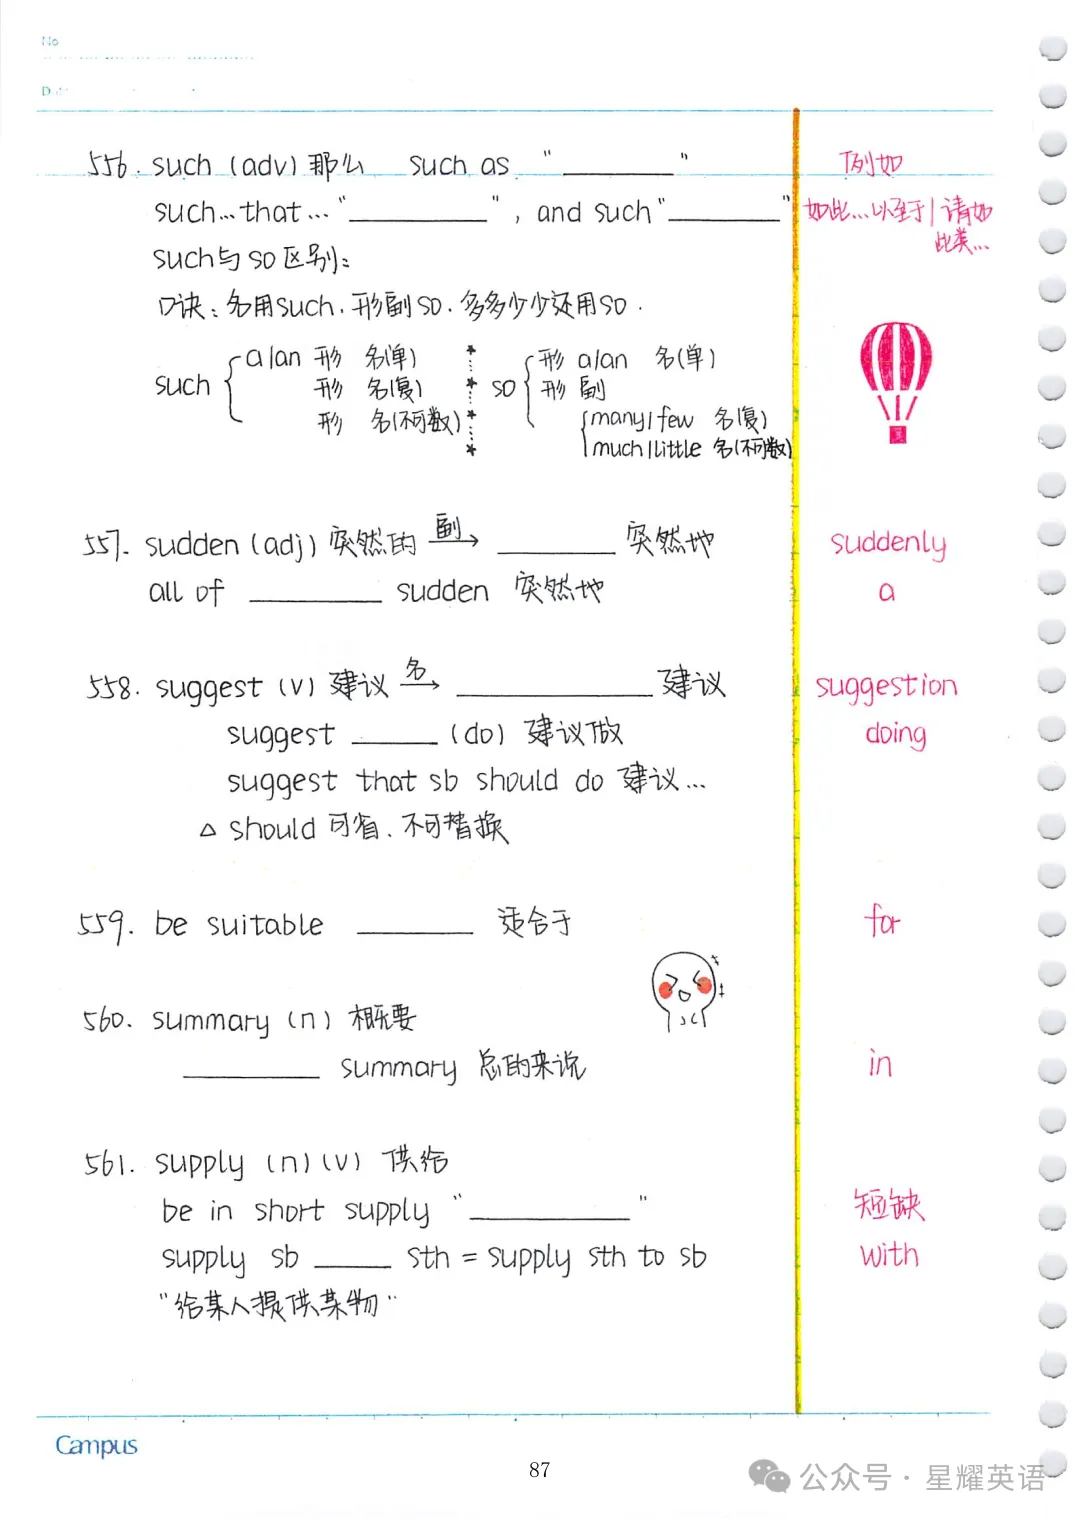 No
556. such (adv) 那么 such as "________" 例如
such...that..."________", and such"________" 如此...以至于/请如
此类...
such与so区别:
口诀: 名用such. 形副so. 多多少少还用so.
a/an 形 名(单) 形 a/an 名(单)
such 形 名(复) so 形 副
形 名(不可数) many/few 名(复)
much/little 名(不可数)
557. sudden (adj) 突然的 副→ ________ 突然地 suddenly
all of ________ sudden 突然地 a
558. suggest (v) 建议 名→ ________ 建议 suggestion
suggest ________ (do) 建议做 doing
suggest that sb should do 建议...
△ should 可省. 不可替换
559. be suitable ________ 适合于 for
560. summary (n) 概要
________ summary 总的来说 in
561. supply (n)(v) 供给
be in short supply "________" 短缺
supply sb ________ sth = supply sth to sb with
"给某人提供某物"
Campus
87
公众号 · 星耀英语